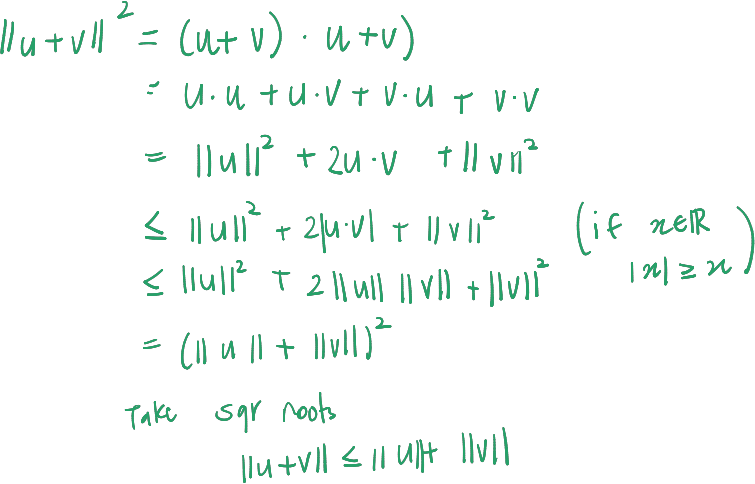 ||u+v||² = (u+v) · u+v)
= u·u + u·v + v·u + v·v
= ||u||² + 2u·v + ||v||²
≤ ||u||² + 2|u·v| + ||v||² (if x∈ℝ
|x| ≥ x)
≤ ||u||² + 2||u|| ||v|| + ||v||²
= (||u|| + ||v||)²
Take sqr roots
||u+v|| ≤ ||u||+ ||v||